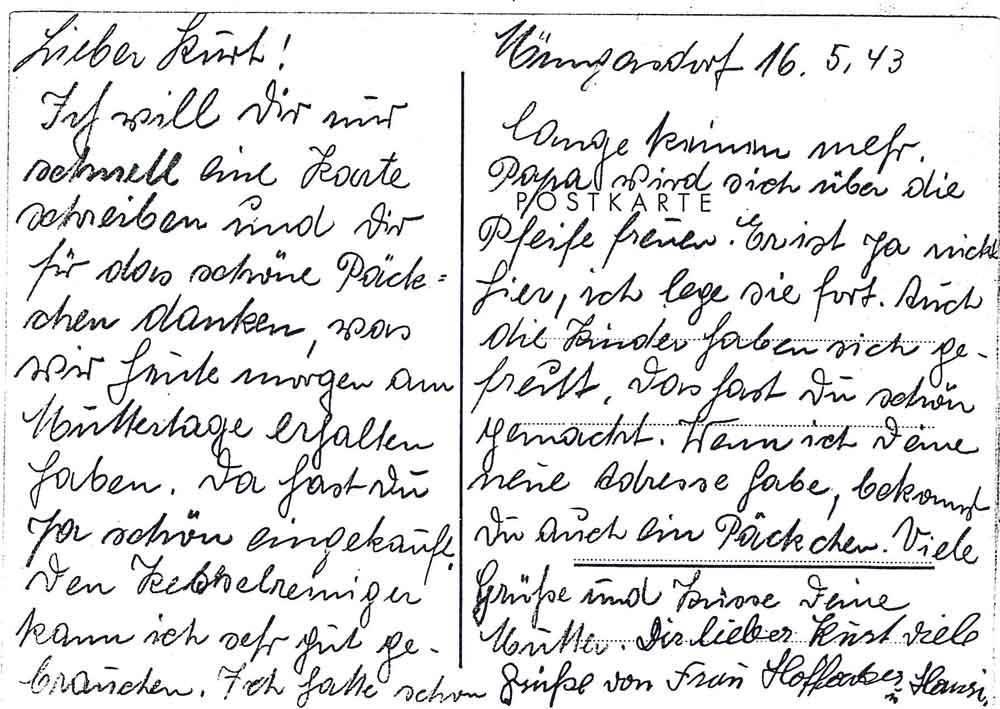 Lieber Kurt!
Ich will Dir nur
schnell eine Karte
schreiben und Dir
für das schöne Päck=
chen danken, was
wir heute morgen am
Muttertage erhalten
haben. Da hast Du
ja schön eingekauft!
Den Kesselreiniger
kann ich sehr gut ge-
brauchen. Ich hatte schon
Müngersdorf 16. 5. 43
lange keinen mehr.
Papa wird sich über die
POSTKARTE
Pfeife freuen. Er ist ja nicht
hier, ich lege sie fort. Auch
die Kinder haben sich ge-
freut, Das hast Du schön
gemacht. Wenn ich Deine
neue Adresse habe, bekommst
Du auch ein Päckchen. Viele
Grüße und Küsse Deine
Mutter. Dir lieber Kurt viele
Grüße von Frau u Hansi.